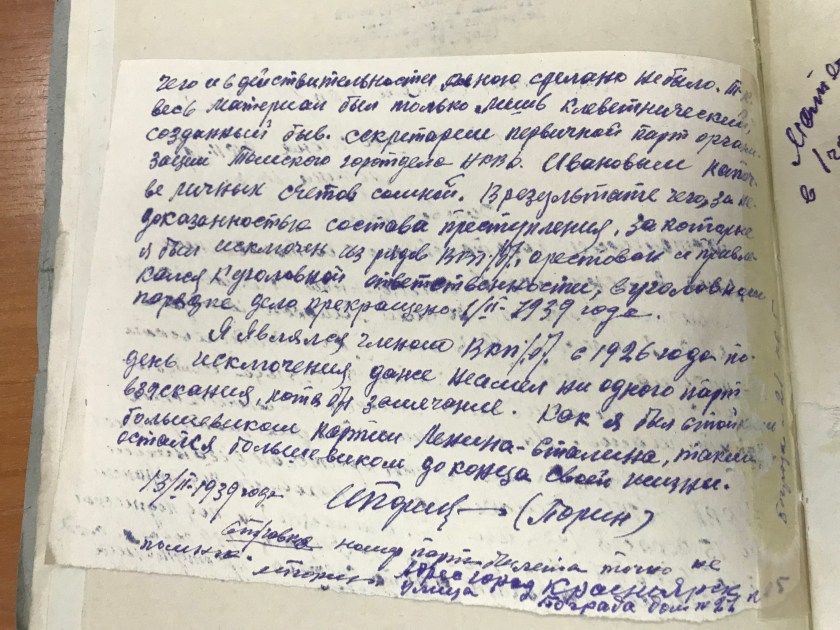 чего и в действительности мною сделано не было. Т.к.
весь материал был только лишь клеветнический,
созданный быв. секретарем первичной парт органи-
зации Томского горотдела НКВД. Ивановым на поч-
ве личных счетов со мной. В результате чего, за не-
доказанностью состава преступления, за которые
я был исключен из рядов ВКП/б/, арестован и привле-
кался к уголовной ответственности, в уголовном
порядке дело прекращено 1/II-1939 года.
Я являлся членом ВКП/б/. с 1926 года по-
день исключения даже не имел ни одного парт
взыскания, хотя бы замечание. Как я был стойким
большевиком партии Ленина-Сталина, таким
остался большевиком до конца своей жизни.
13/II-1939 года (Порин)
Справка номер парт билета точно не
помню Адрес город Красноярск
улица дом № 22
Мате
в